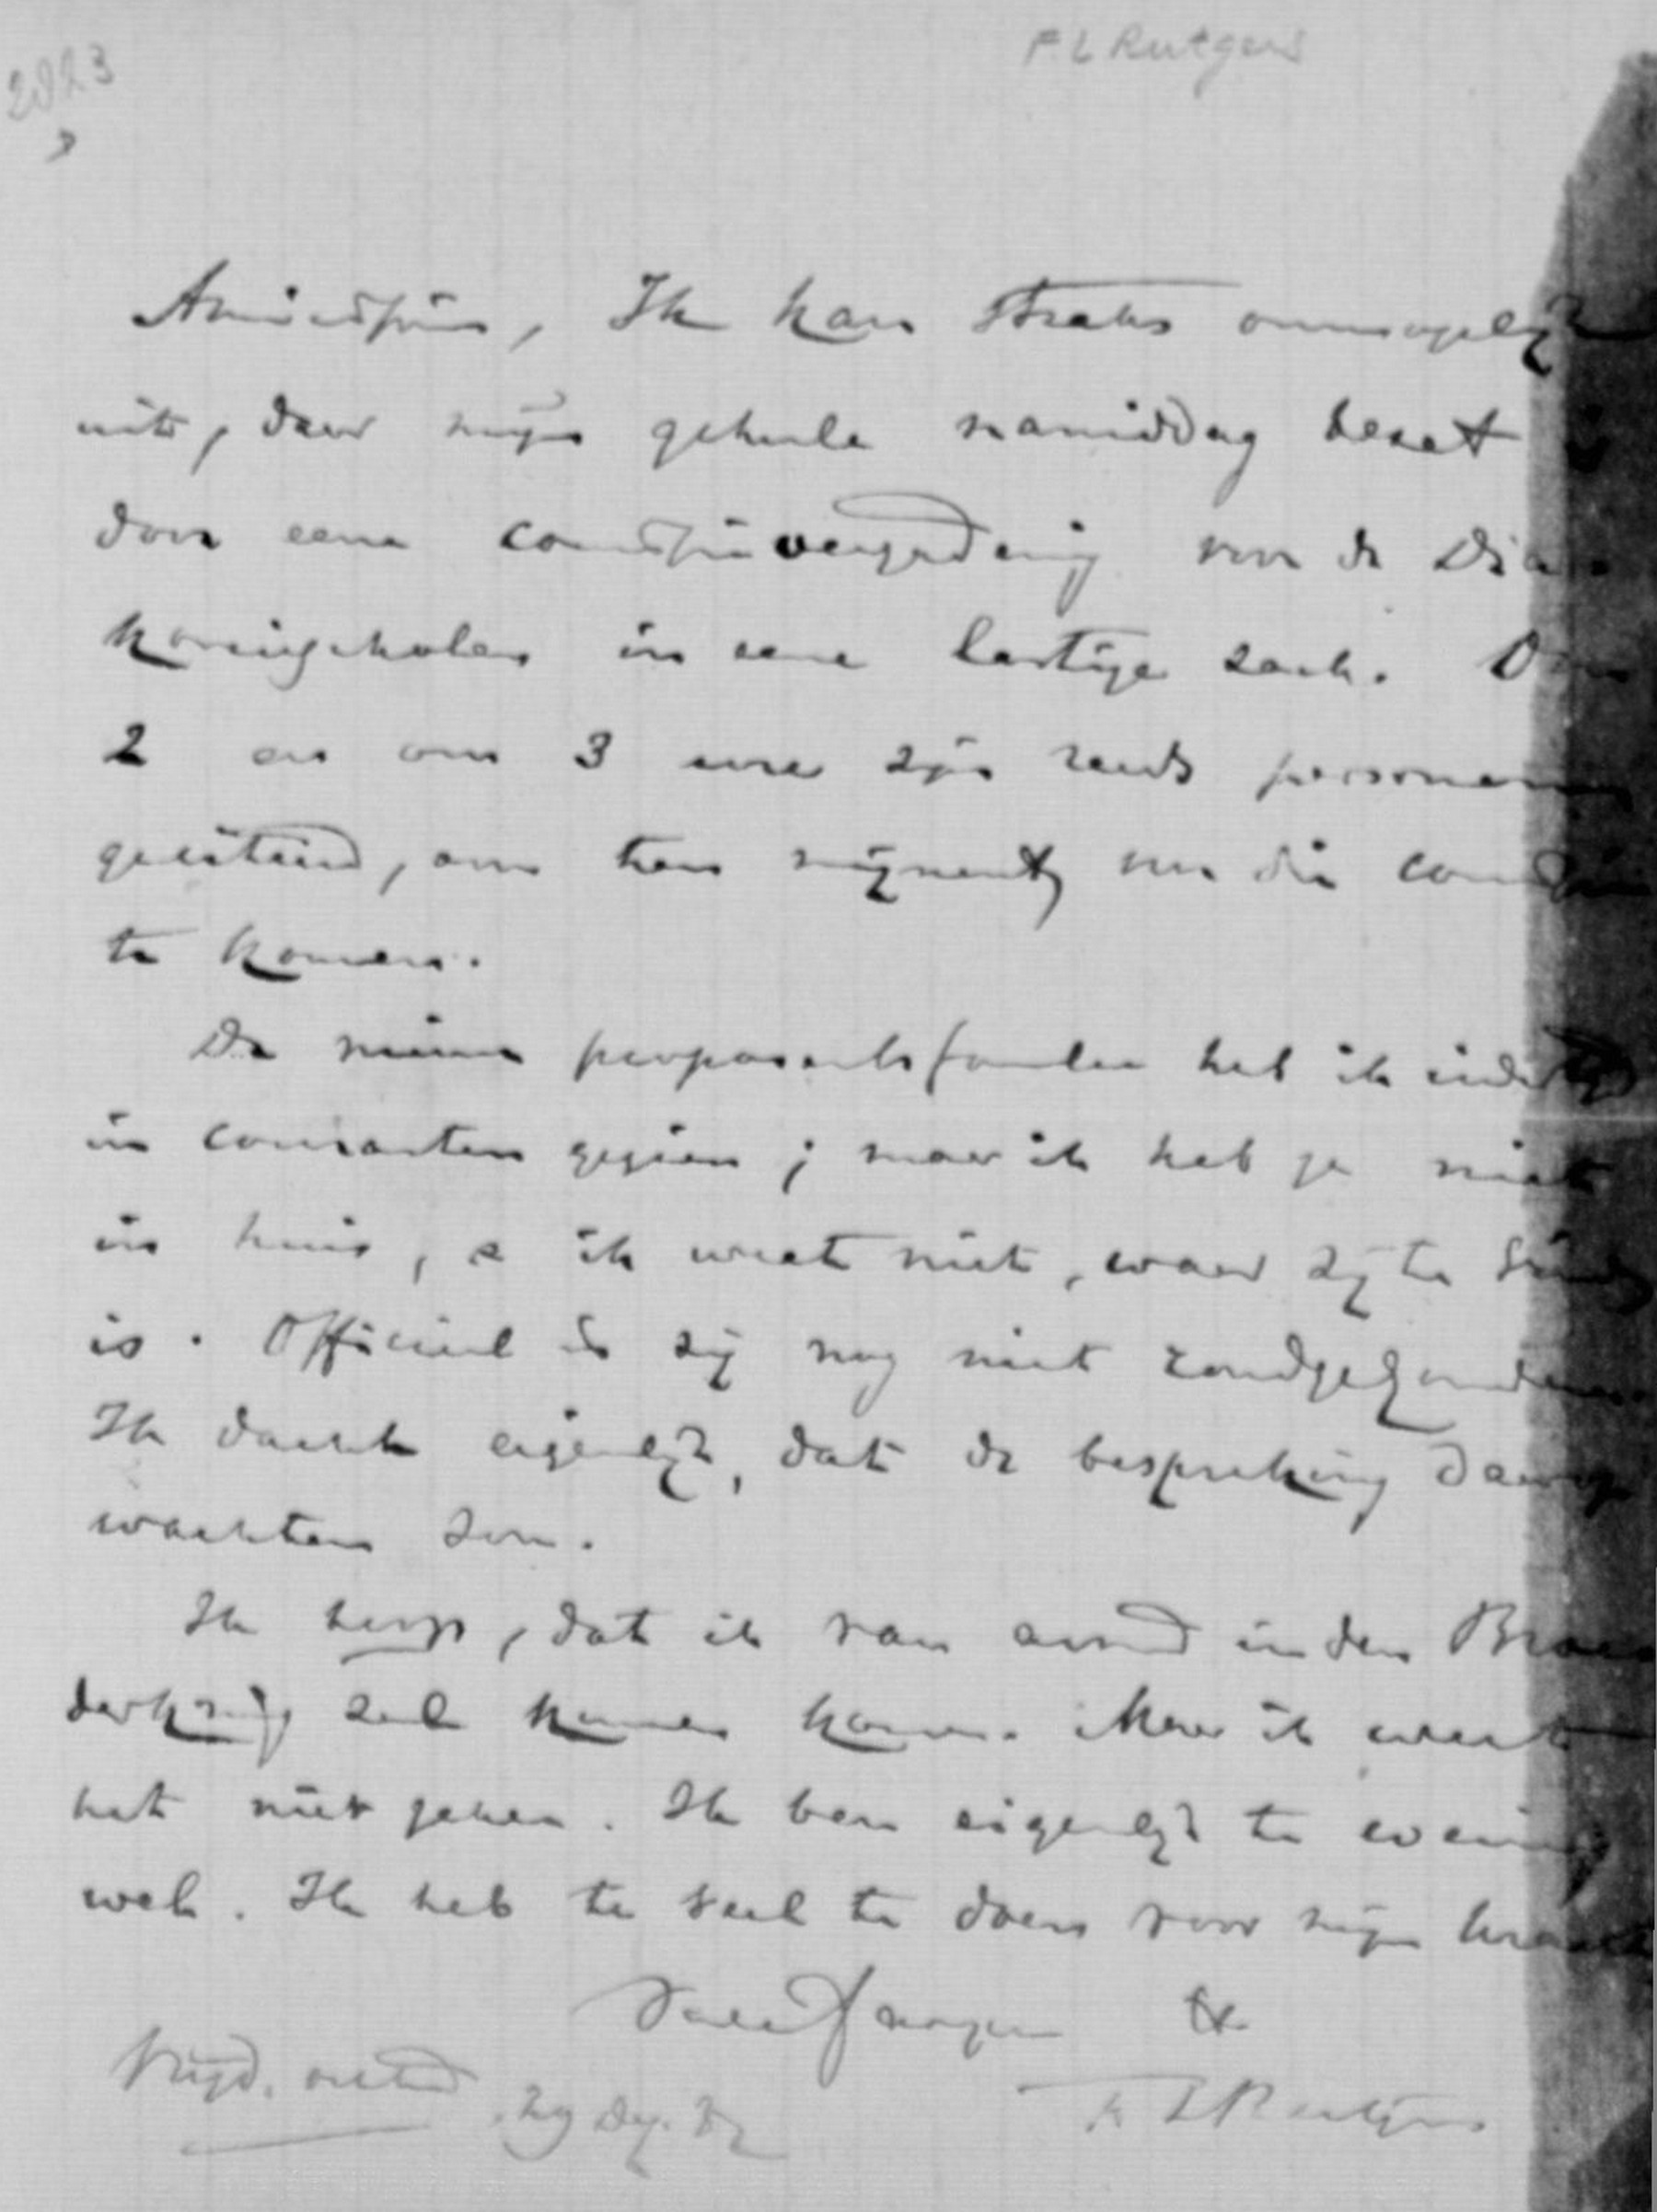 F L Rutgers
Amicissime, Ik kan straks onmogelijk
uit, daar mijn geheele namiddag bezet is
door eene commissievergadering van de Dia-
koniescholen in eene lastige zaak. Om
2 en om 3 ure zijn reeds personen
geciteerd, om ten mijnent van die commissie
te komen.
De nieuwe proponentsformule heb ik indertijd
in couranten gezien; maar ik heb ze niet
in huis, en ik weet niet, waar zij te vinden
is. Officieel is zij nog niet rondgezonden.
Ik dacht eigenlijk, dat de bespreking daarop
wachten zou.
Ik hoop, dat ik van avond in den Broe-
derkring zal kunnen komen. Maar ik weet
het niet zeker. Ik ben eigenlijk te weinig
wel. Ik heb te veel te doen voor mijn kracht
t.t.
F L Rutgers
Vrijd. ocht.